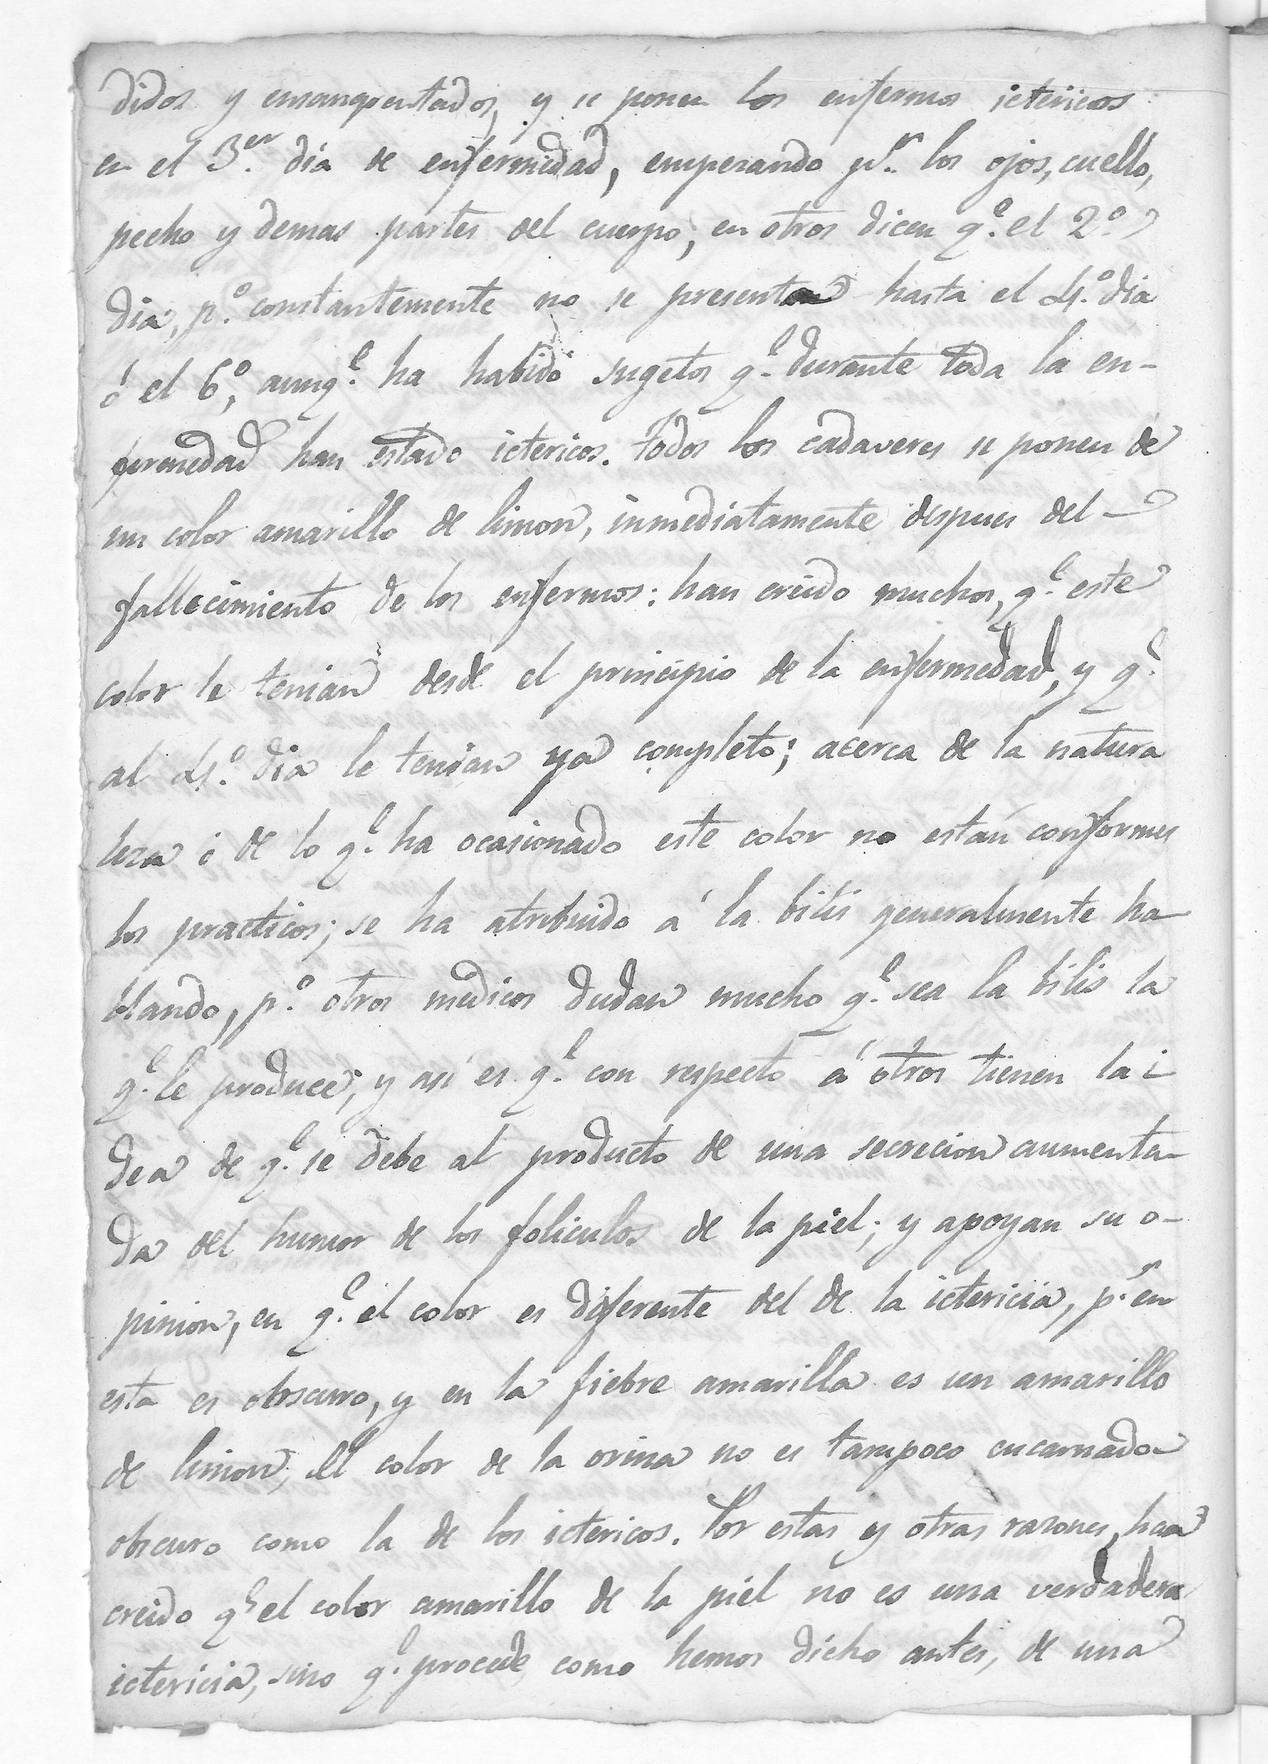 didos y ensangrentados, y se ponen los enfermos ictericos
en el 3.er dia de enfermedad, empezando p.r los ojos, cuello,
pecho y demas partes del cuerpo; en otros dicen q.e el 2.o
dia, p.o constantemente no se presenta hasta el 4.o dia
ó el 6.o, aunq.e ha habido sugetos q.e durante toda la en-
fermedad han estado ictericos. Todos los cadaveres se ponen de
un color amarillo de limon, inmediatamente despues del
fallecimiento de los enfermos: han creido muchos, q.e este
color le tenian desde el principio de la enfermedad, y q.e
al 4.o dia le tenian ya completo; acerca de la natura
leza ó de lo q.e ha ocasionado este color no están conformes
los practicos; se ha atribuido á la bilis generalmente ha-
blando, p.o otros medicos dudan mucho q.e sea la bilis la
q.e le produce; y asi es q.e con respecto á otros tienen la i-
dea de q.e se debe al producto de una secrecion aumenta-
da del humor de los foliculos de la piel; y apoyan su o-
pinion, en q.e el color es diferente del de la ictericia, p.r en
esta es obscuro, y en la fiebre amarilla es un amarillo
de limon, el color de la orina no es tampoco encarnado
obscuro como la de los ictericos. Por estas y otras razones, han
creido q.e el color amarillo de la piel no es una verdadera
ictericia, sino q.e procede, como hemos dicho antes, de una